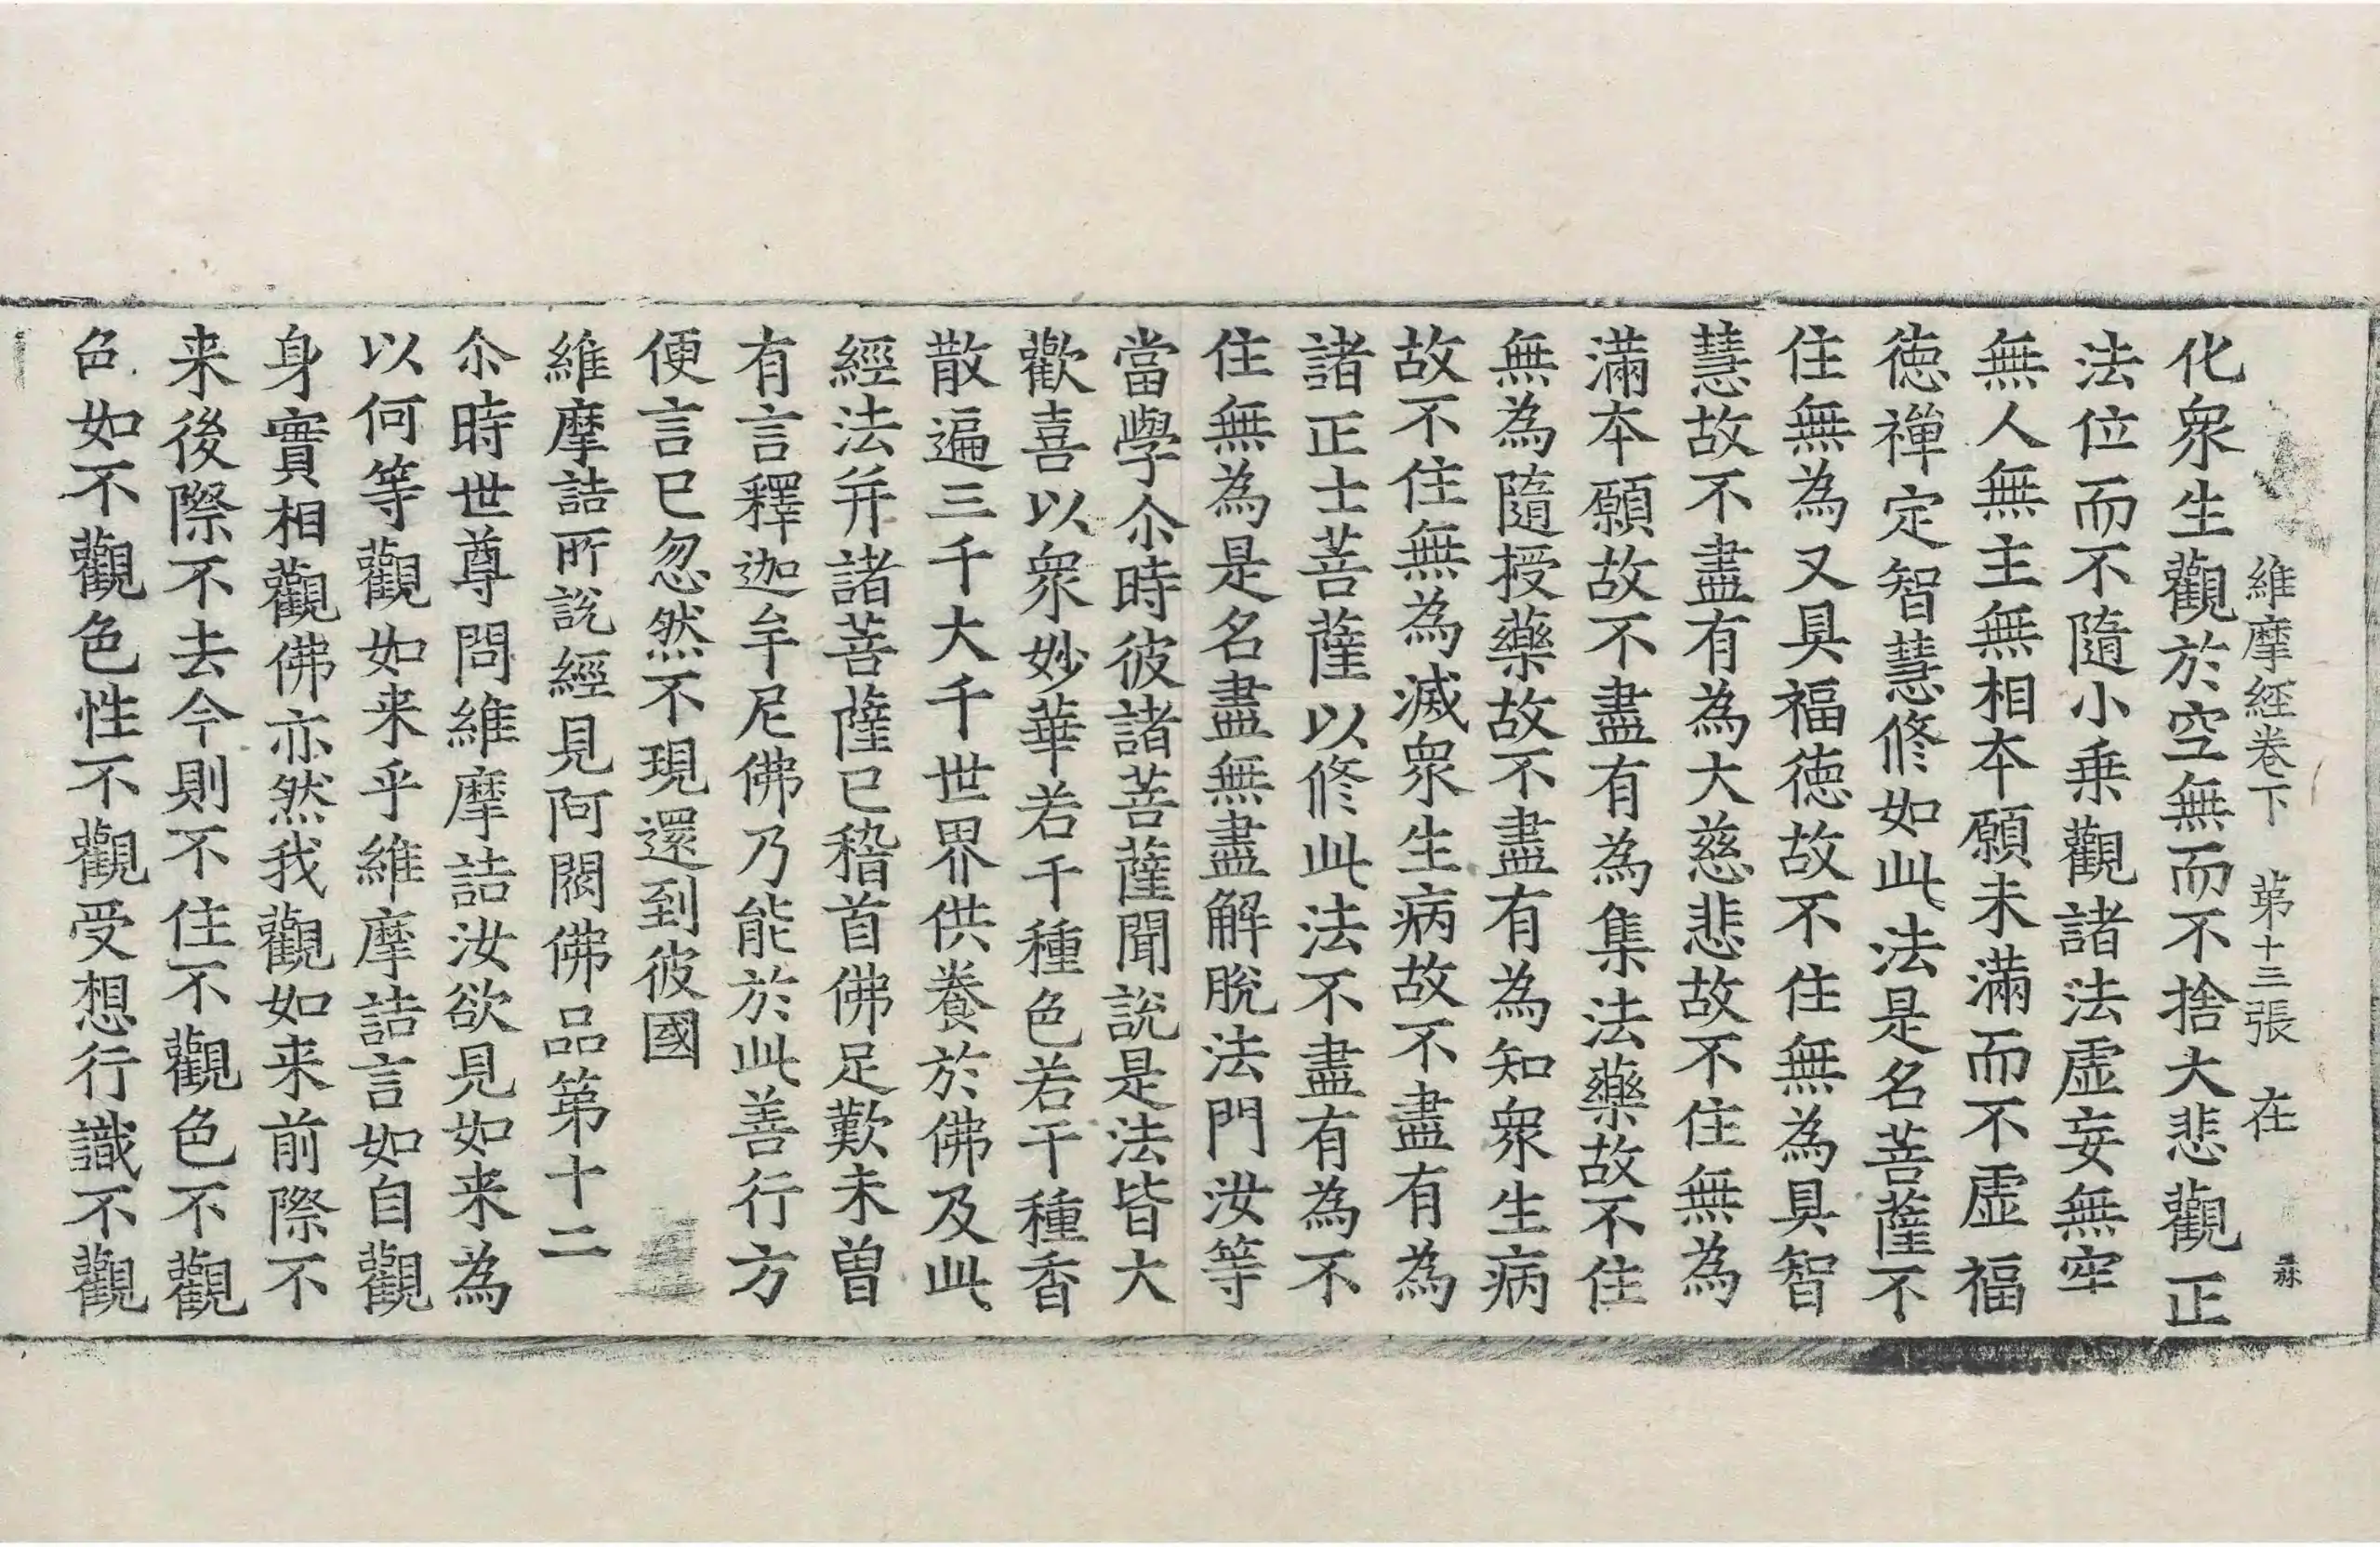 維摩経卷下 苐十三張 在
化衆生觀於空無而不捨大悲觀正
法位而不隨小乗觀諸法虛妄無牢
無人無主無相本願未滿而不虛福
徳禪定智慧修如此法是名菩薩不
住無為又具福徳故不住無為具智
慧故不盡有為大慈悲故不住無為
滿本願故不盡有為集法藥故不住
無為隨授藥故不盡有為知衆生病
故不住無為滅衆生病故不盡有為
諸正士菩薩以修此法不盡有為不
住無為是名盡無盡解脫法門汝等
當學尒時彼諸菩薩聞說是法皆大
歡喜以衆妙華若干種色若干種香
散遍三千大千世界供養於佛及此
經法并諸菩薩已稽首佛足歎未曾
有言釋迦牟尼佛乃能於此善行方
便言已忽然不現還到彼國
維摩詰所說經見阿閦佛品苐十二
尒時世尊問維摩詰汝欲見如来為
以何等觀如来乎維摩詰言如自觀
身實相觀佛亦然我觀如来前際不
来後際不去今則不住不觀色不觀
色如不觀色性不觀受想行識不觀